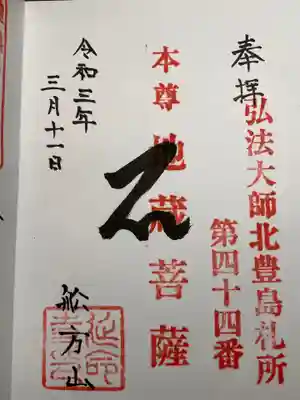 奉拝
弘法大師北豊島札所
第四十四番
本尊地蔵菩薩
令和三年
三月十一日
舩方山
延命寺